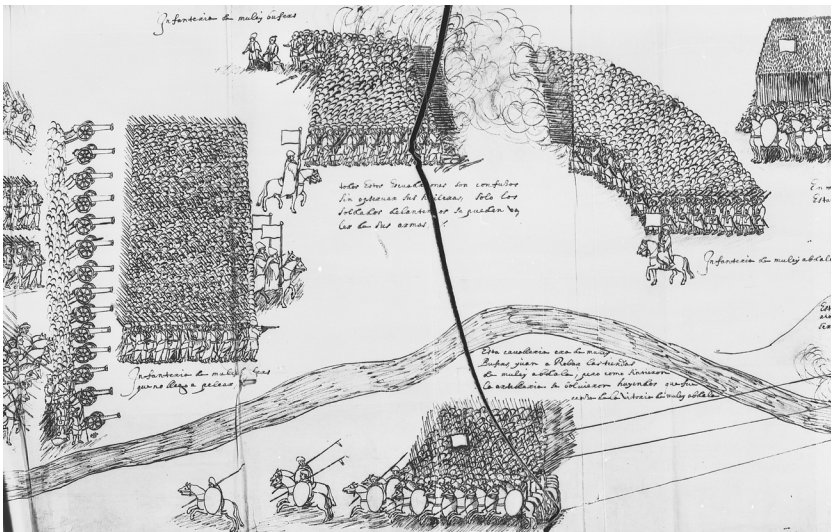 Infanteria de muley bufers
todos Estos Escuadrones son confusos
sin estender sus hileras, solo los
soldados delanteros se pueden va
ler de sus armas.
Infanteria de muley abdala
En
Esta
Infanteria de muley
que no llego a pelear
Est
Esta cavalleria era de muley
Bufers yvan a Robar las tiendas
de muley abdala, pero como sintieron
la artilleria se bolvieron huyendo que fue
de la Vitoria de muley abdala